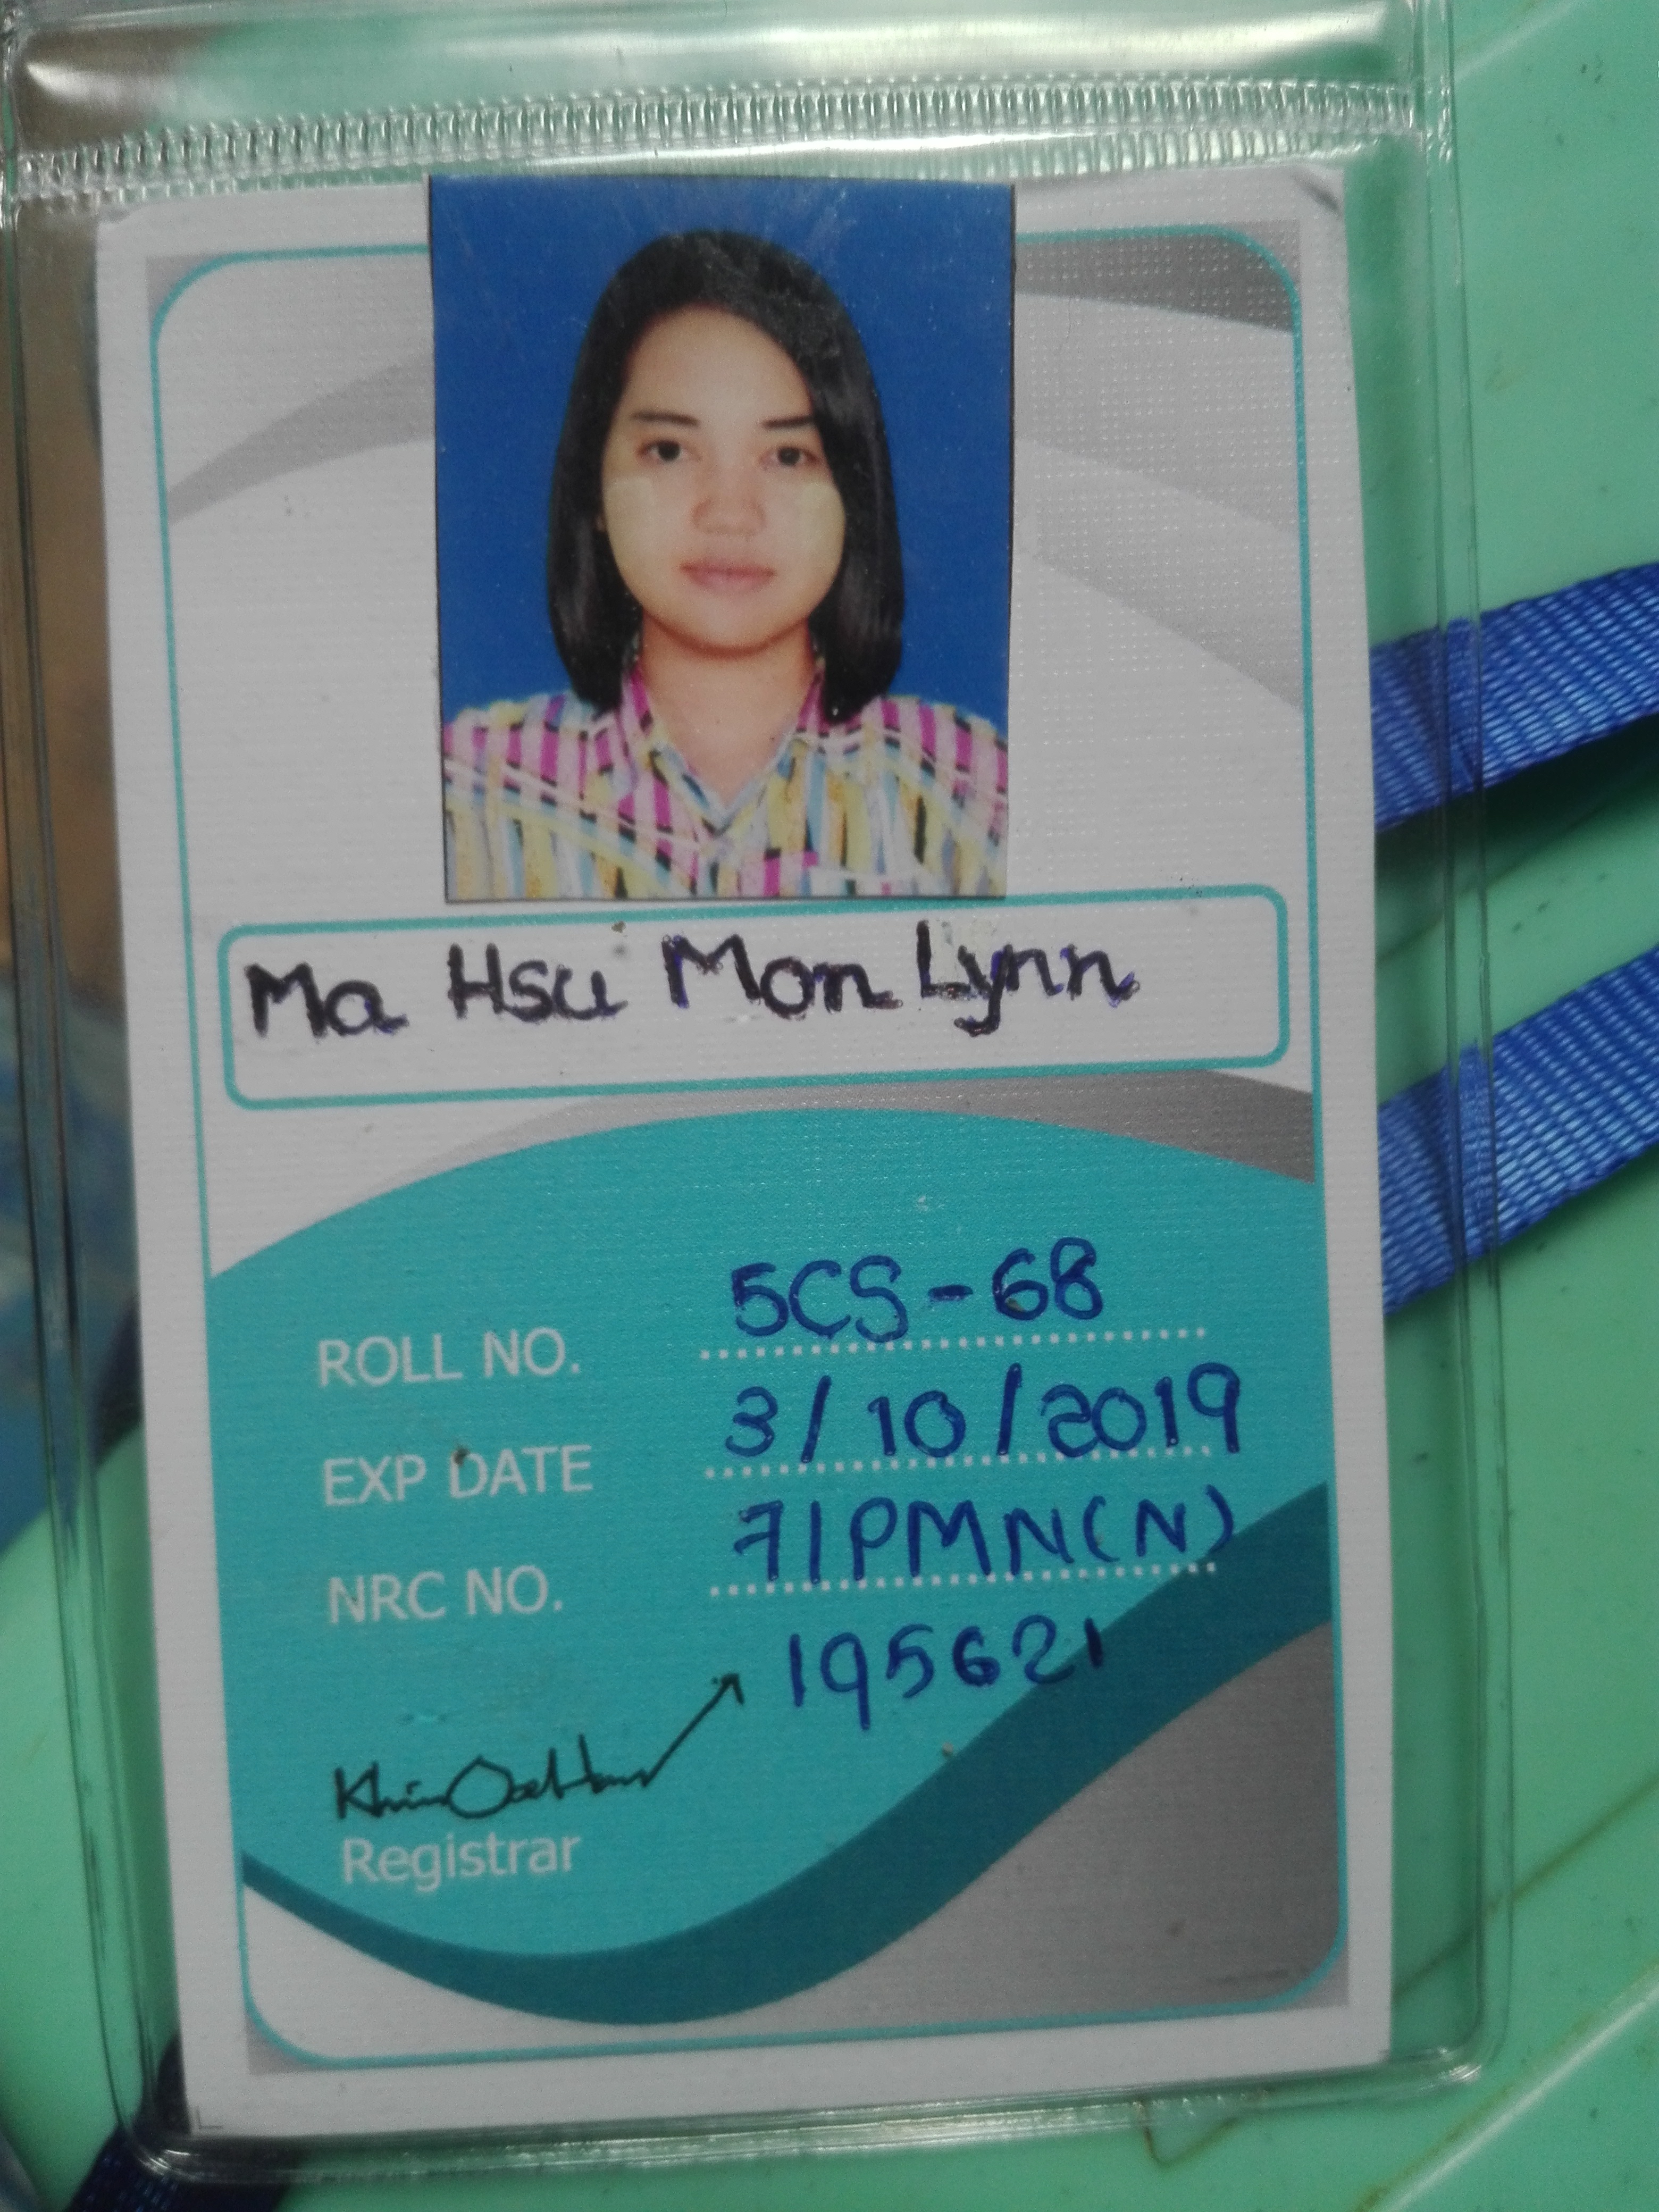 Ma Hsu Mon Lynn
ROLL NO. 5CS-68
EXP DATE 3/10/2019
NRC NO. 7/PMN(N)
195621
Registrar